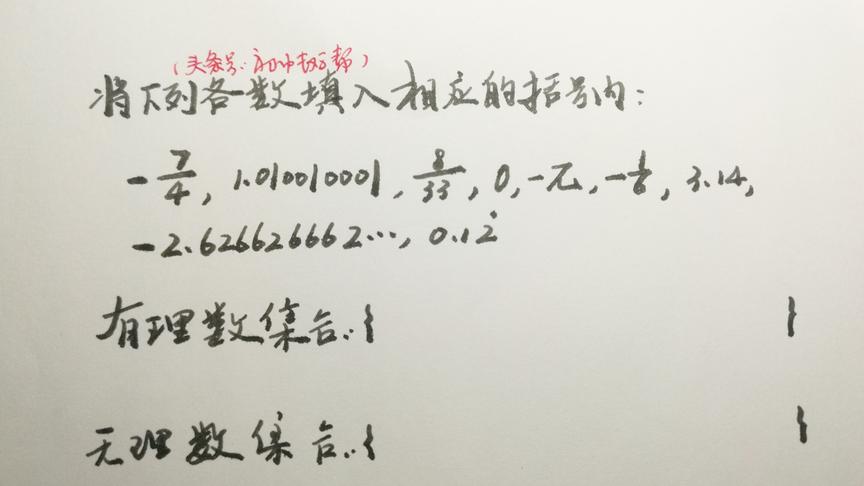 (头条号:初中数学帮)
将下列各数填入相应的括号内:
-7/4, 1.010010001, 8/33, 0, -π, -1/6, 3.14,
-2.626626662…, 0.12̇
有理数集合:{ }
无理数集合:{ }